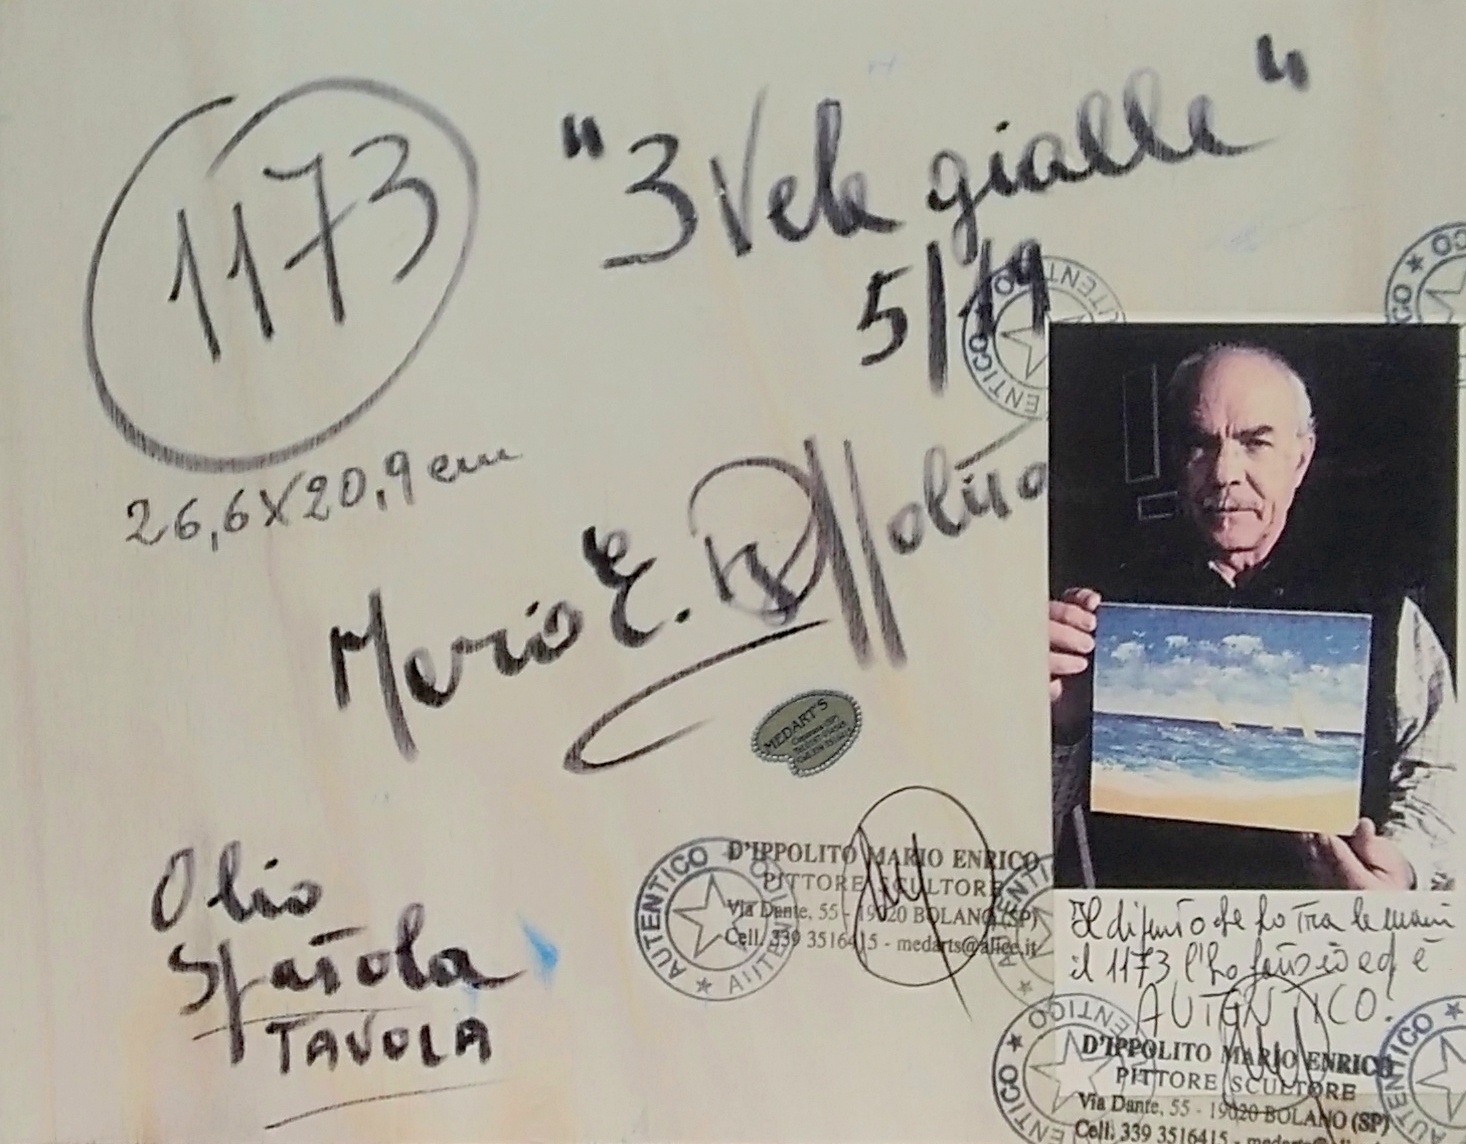 1173
"3 Vele gialle"
5/19
26,6X20,9 cm
Mario E. D'Ippolito
MEDART'S
Olio
Spatola
TAVOLA
D'IPPOLITO MARIO ENRICO
PITTORE SCULTORE
Via Dante, 55 - 19020 BOLANO (SP)
Cell. 339 3516415 - medarts@alice.it
AUTENTICO ★ AUTENTICO ★
AUTENTICO
AUTENTICO
Il dipinto che ho tra le mani
il 1173 l'ho fatto io ed è
AUTENTICO!
D'IPPOLITO MARIO ENRICO
PITTORE SCULTORE
Via Dante, 55 - 19020 BOLANO (SP)
Cell. 339 3516415 -
AUTENTICO
AUTENTICO